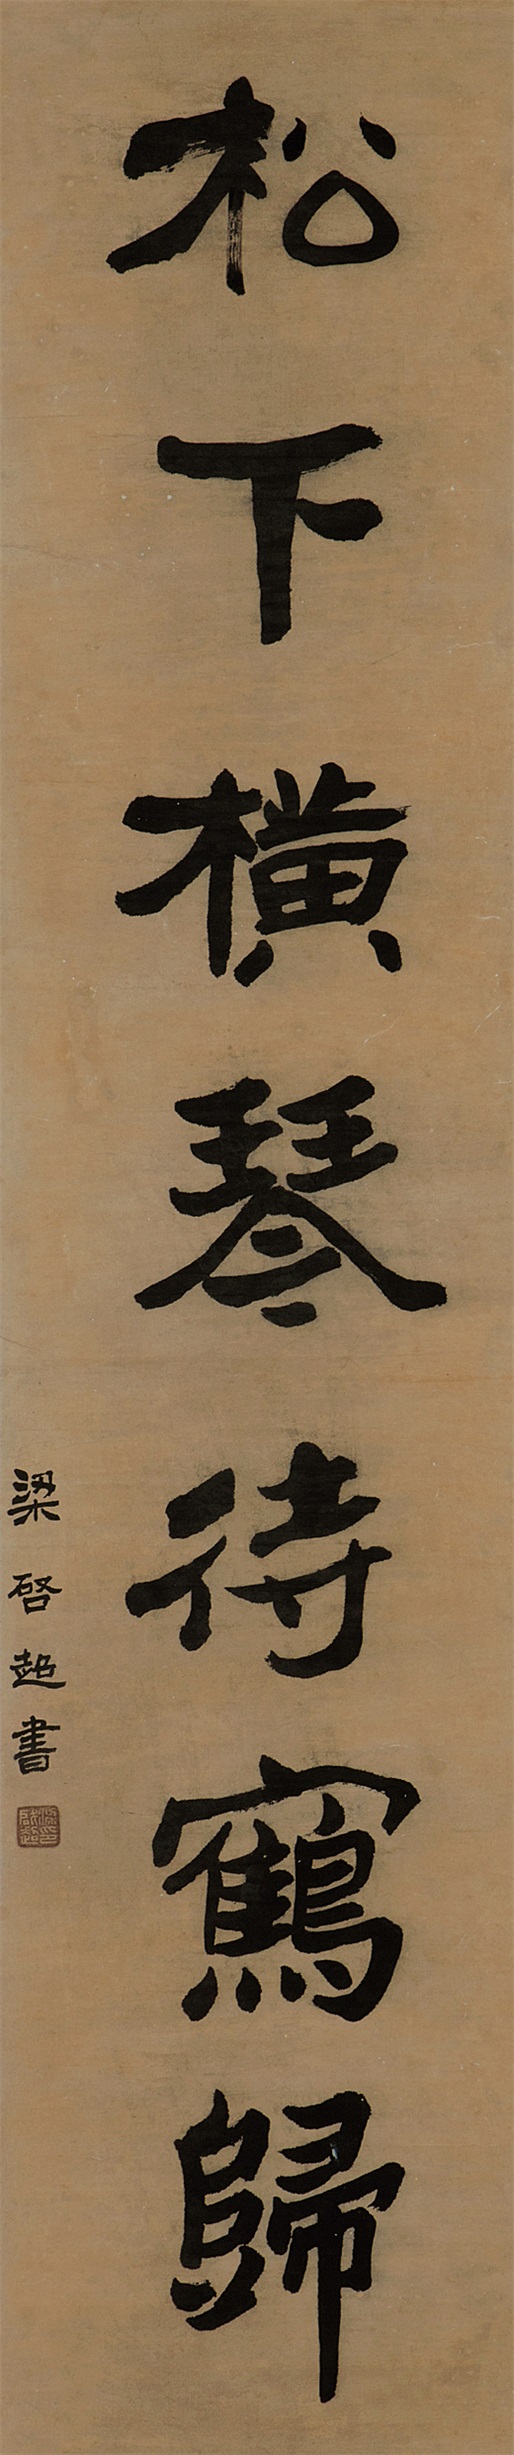 松下横琴待鶴歸
梁啓超書